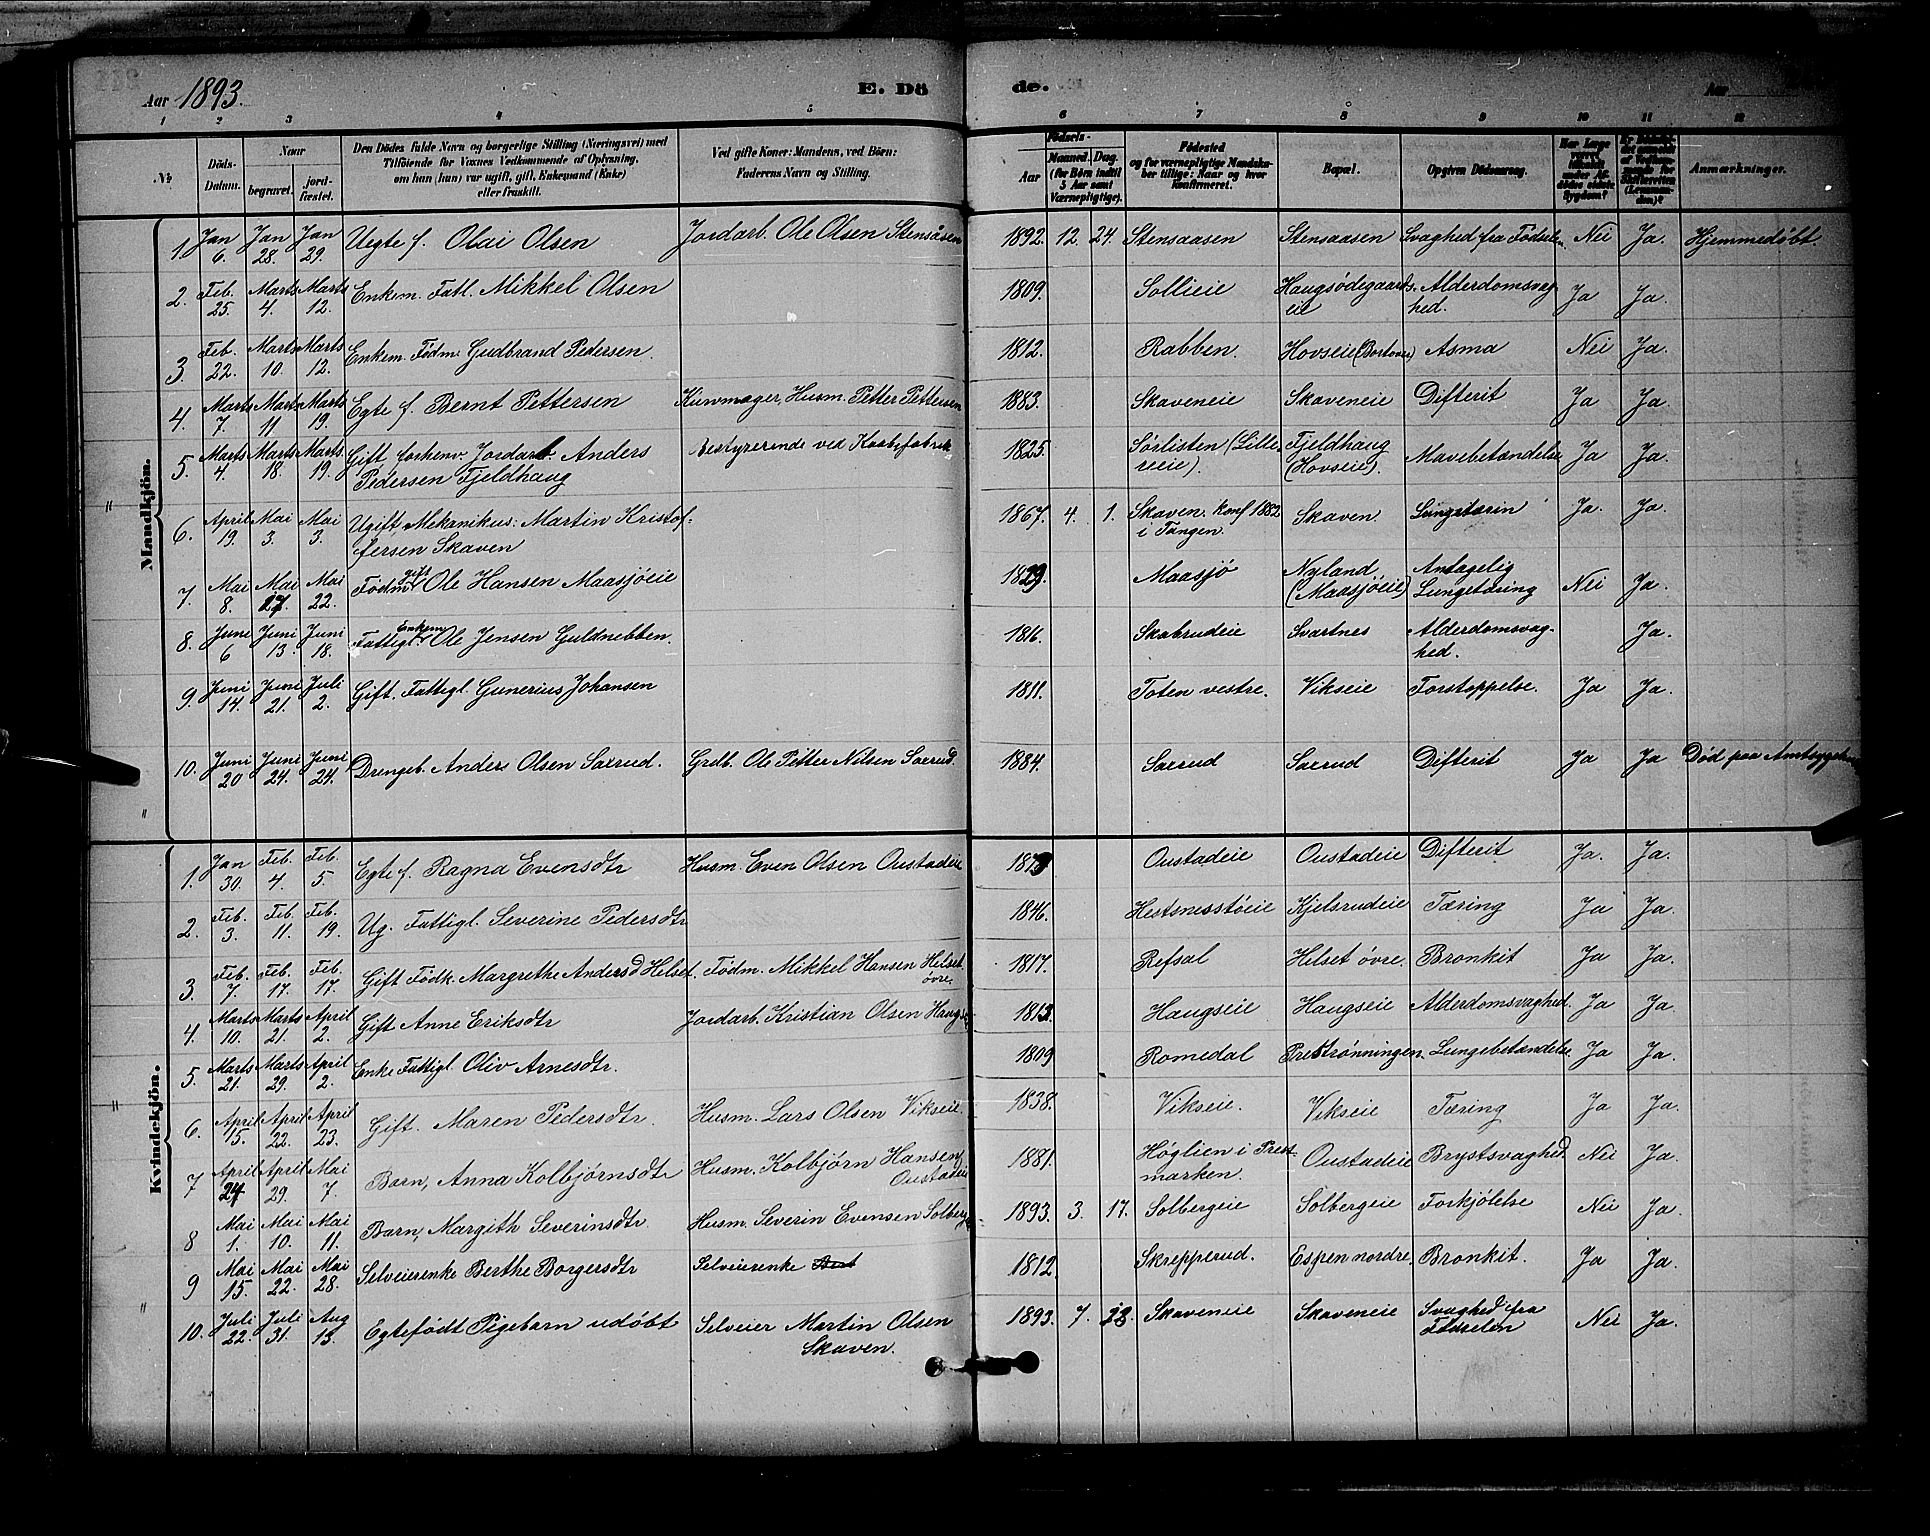 Aar 1893.
E. Dö
de.
Aar
1 2 3 4 5 6 7 8 9 10 11 12
№
Döds-Datum.
Naar
begravet.
jord-fæstet.
Den Dödes fulde Navn og borgerlige Stilling (Næringsvei) med
Tilföiende for Voxnes Vedkommende af Oplysning,
om han (hun) var ugift, gift, Enkemand (Enke)
eller fraskilt.
Ved gifte Koner: Mandens, ved Börn:
Faderens Navn og Stilling.
Födsels-
Aar
Maaned. Dag.
(for Börn indtil
5 Aar samt
Værnepligtige).
Födested
og for værnepligtige Mandska-
ber tillige: Naar og hvor
konfirmeret.
Bopæl.
Opgiven Dödsaarsag.
Har Læge
Anmærkninger.
Mandkjön.
1. Jan 6. Jan 28. Jan 29. Uegte f. Olai Olsen Jordarb. Ole Olsen Stensåsen 1892. 12. 24. Stensaasen Stensaasen Svaghed fra Fødselen. Nei Ja. Hjemmedøbt.
2. Feb. 25. Marts 4. Marts 12. Enkem. Fatl. Mikkel Olsen 1809. Sollieie Haugsødegaards-eie Alderdomsvaghed. Ja Ja.
3. Feb. 22. Marts 10. Marts 12. Enkem. Fødm. Gudbrand Pedersen. 1812. Rabben. Hovseie Asma Nei Ja.
4. Marts 7. Marts 11. Marts 19. Egte f. Bernt Pettersen Kurvmager, Husm. Petter Pettersen 1883. Skaveneie Skaveneie Difterit Ja Ja.
5. Marts 4. Marts 18. Marts 19. Gift forhenv. Jordarb. Anders Pedersen Fjeldhaug Bestyrerende ved 1825. Sørlisten (Lillereie). Fjeldhaug (Hovseie). Mavebetændelse Ja Ja.
6. April 19. Mai 3. Mai 3. Ugift, Mekanikus: Martin Kristoffersen Skaven 1867. 4. 1. Skaven. konf 1882 i Tangen. Skaven. Lungetærin Ja. Ja.
7. Mai 8. Mai 27. Mai 22. Fødm. gift Ole Hansen Maasjøeie 1829. Maasjø Nyland (Maasjøeie) Antagelig Lungetæring Nei Ja.
8. June 6 Juni 13. Juni 18. Fattigl. Enkem Ole Jensen Guldnebben. 1816. Skabrudeie Svartnes Alderdomsvaghed. Ja.
9. Juni 14. Juni 21. Juli 2. Gift. Fattigl. Gunerius Johansen 1811. Toten vestre. Vikseie Forstoppelse. Ja Ja.
10. Juni 20 Juni 24. Juni 24. Drengeb. Anders Olsen Saxrud. Grdb. Ole Petter Nilsen Saxrud. 1884. Saxrud Saxrud Difterit Ja Ja Død paa Amtssygehus
Kvindekjön.
1. Jan 30. Feb. 4. Feb. 5. Egte f. Ragna Evensdtr Husm. Even Olsen Oustadeie Oustadeie Oustadeie Difterit Ja. Ja.
2. Feb. 3. Feb. 11. Feb. 19. Ug. Fattigl. Severine Pedersdtr 1846. Hertsnesstøeie Kjelsrudeie Tæring Ja Ja.
3. Feb. 7. Feb. 17. Feb. 17. Gift Fødk. Margrethe Andersd Helset. Fødm. Mikkel Hansen Helset øvre. 1817. Refsal Helset øvre. Bronkit Ja Ja.
4. Marts 10. Marts 21. April 2. Gift Anne Eriksdtr Jordarb. Kristian Olsen Haugse 1813. Haugseie Haugseie Alderdomsvaghed. Ja Ja.
5. Marts 21. Marts 29. April 2. Enke Fattigl Oliv Arnesdtr. 1809 Romedal Prestrønningen. Lungebetændelse Ja Ja.
6. April 15. April 22. April 23. Gift. Maren Pedersdtr. Husm. Lars Olsen Vikseie. 1838. Vikseie. Vikseie Tæring Ja Ja.
7 April 24 April 29. Mai 7. Barn, Anna Kolbjørnsdtr Husm. Kolbjørn Hansen, Oustadeie 1881. Høglien i Prestmarken. Oustadeie Brystsvaghed Nei Ja.
8 Mai 1. Mai 10. Mai 11. Barn, Margith Severinsdtr. Husm. Severin Evensen Solberg 1893. 3. 17. Solbergeie Solbergeie Forkjølelse Nei Ja.
9 Mai 15. Mai 22. Mai 28. Selveierenke Berthe Borgersdtr Selveierenke 1812. Skrepperud. Espen nordre. Bronkit. Ja Ja.
10. Juli 22. Juli 31. Aug 13. Egtefødt Pigebarn udøbt Selveier Martin Olsen Skaven. 1893. 7. Skaveneie Skaveneie Svaghed fra Fødselen Nei Ja.